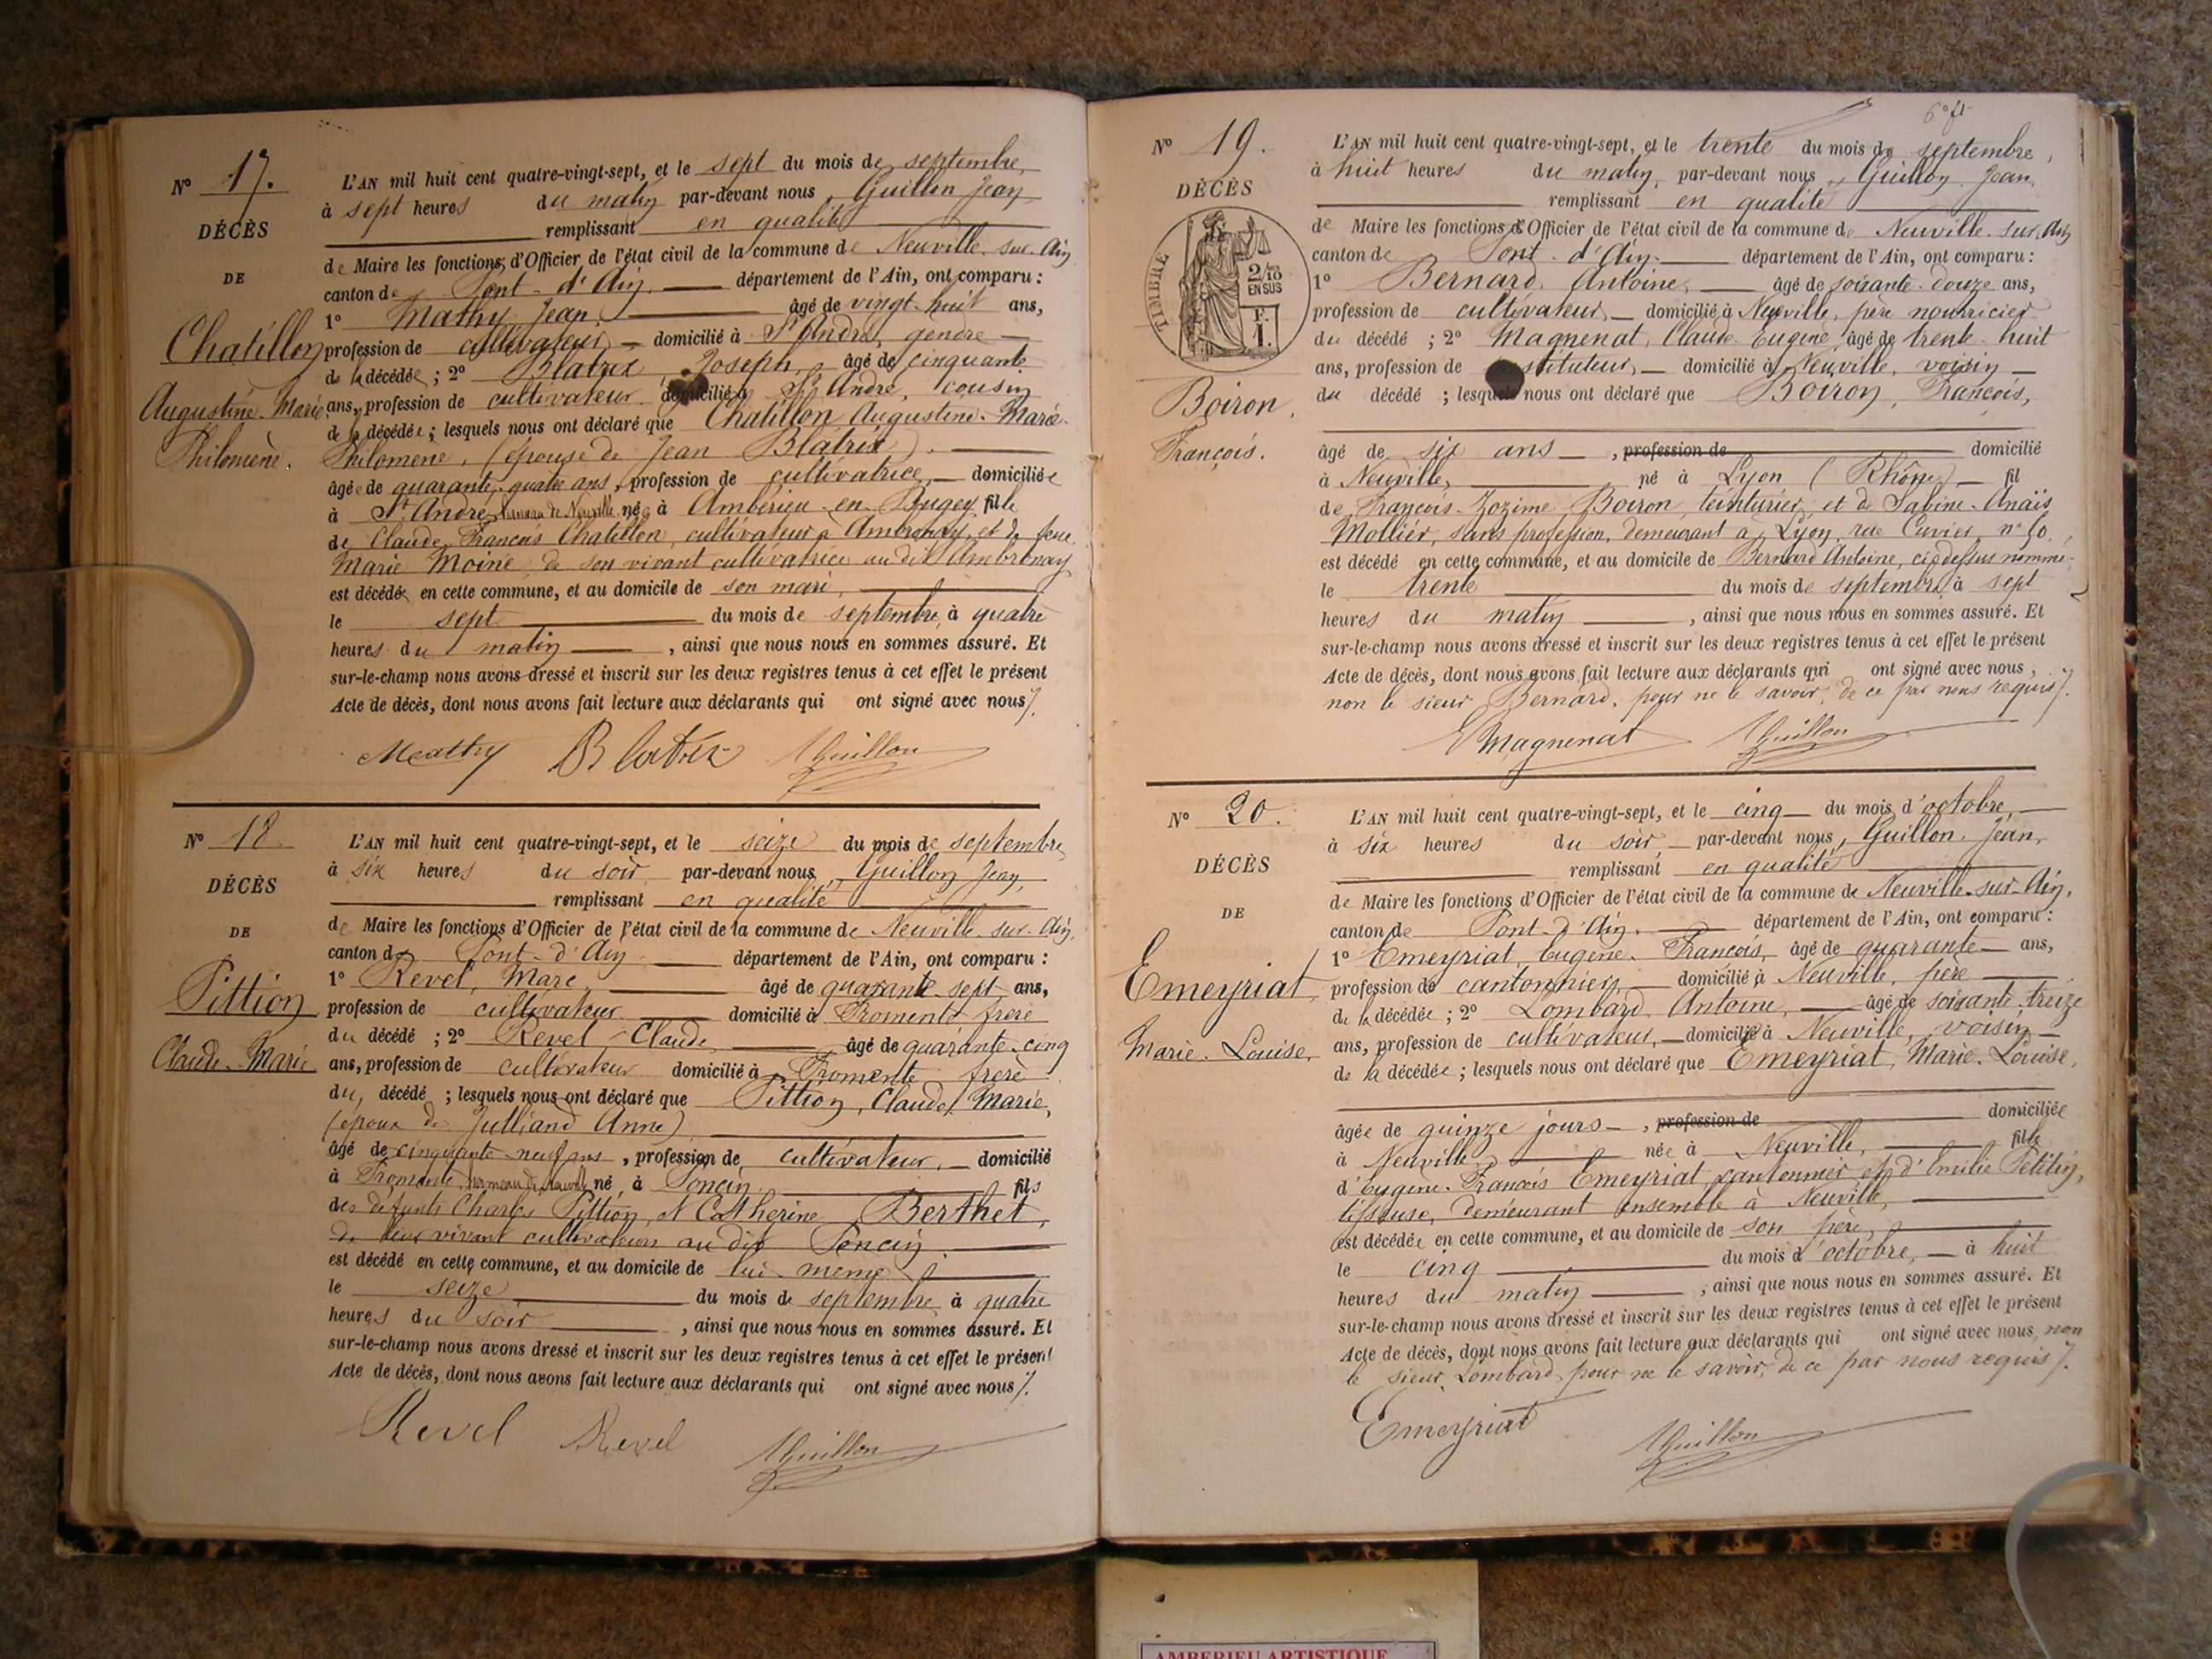 Nº 17.
DÉCÈS
DE
Chatillon
Augustine-Marie
Philomène.
L'AN mil huit cent quatre-vingt-sept, et le sept du mois de septembre,
à sept heures du matin par-devant nous, Guillon Jean
remplissant en qualité
de Maire les fonctions d'Officier de l'état civil de la commune de Neuville-sur-Ain
canton de Pont-d'Ain département de l'Ain, ont comparu :
1º Mathy Jean, âgé de vingt-huit ans,
profession de cultivateur domicilié à St André, gendre
de la décédée ; 2º Blatrix, Joseph, âgé de cinquante
ans, profession de cultivateur domicilié à St André, cousin
de la décédée ; lesquels nous ont déclaré que Chatillon Augustine-Marie
Philomène, (épouse de Jean Blatrix).
âgée de quarante-quatre ans, profession de cultivatrice, domiciliée
à St André, hameau de Neuville née à Ambérieu-en-Bugey, fille
de Claude François Chatillon, cultivateur à Ambronay, et de feue
Marie Moine de son vivant cultivatrice au dit Ambronay
est décédée en cette commune, et au domicile de son mari,
le sept du mois de septembre, à quatre
heures du matin, ainsi que nous nous en sommes assuré. Et
sur-le-champ nous avons dressé et inscrit sur les deux registres tenus à cet effet le présent
Acte de décès, dont nous avons fait lecture aux déclarants qui ont signé avec nous
Mathy Blatrix JGuillon
Nº 18.
DÉCÈS
DE
Pittion
Claude-Marie
L'AN mil huit cent quatre-vingt-sept, et le seize du mois de septembre
à six heures du soir par-devant nous, Guillon Jean,
remplissant en qualité
de Maire les fonctions d'Officier de l'état civil de la commune de Neuville-sur-Ain,
canton de Pont-d'Ain département de l'Ain, ont comparu :
1º Revel, Marc, âgé de quarante-sept ans,
profession de cultivateur domicilié à Fromente frère
du décédé ; 2º Revel Claude, âgé de quarante-cinq
ans, profession de cultivateur domicilié à Fromente frère
du décédé ; lesquels nous ont déclaré que Pittion, Claude Marie,
(époux de Julliand Anne)
âgé de cinquante-neuf ans, profession de cultivateur, domicilié
à Fromente, hameau de Neuville né à Poncin, fils
des défunts Charles Pittion, et Catherine Berthet,
de leur vivant cultivateurs au dit Poncin
est décédé en cette commune, et au domicile de lui-même
le seize du mois de septembre à quatre
heures du soir, ainsi que nous nous en sommes assuré. Et
sur-le-champ nous avons dressé et inscrit sur les deux registres tenus à cet effet le présent
Acte de décès, dont nous avons fait lecture aux déclarants qui ont signé avec nous
Revel Revel JGuillon
Nº 19.
DÉCÈS
TIMBRE
2/10
EN SUS
F.
1.
Boiron,
François.
L'AN mil huit cent quatre-vingt-sept, et le trente du mois de septembre,
à huit heures du matin, par-devant nous, Guillon Jean,
remplissant en qualité
de Maire les fonctions d'Officier de l'état civil de la commune de Neuville-sur-Ain
canton de Pont-d'Ain département de l'Ain, ont comparu :
1º Bernard, Antoine, âgé de soixante-douze ans,
profession de cultivateur, domicilié à Neuville, père nourricier
du décédé ; 2º Magnenat, Claude-Eugène âgé de trente-huit
ans, profession de stituteur, domicilié à Neuville, voisin
du décédé ; lesquels nous ont déclaré que Boiron, François,
âgé de six ans, profession de domicilié
à Neuville, né à Lyon (Rhône) fil
de François-Zozime Boiron, teinturier, et de Sabine-Anaïs
Mollier, sans profession, demeurant à Lyon, rue Cuvier, nº 60,
est décédé en cette commune, et au domicile de Bernard Antoine, ci-dessus nommé
le trente du mois de septembre à sept
heures du matin, ainsi que nous nous en sommes assuré. Et
sur-le-champ nous avons dressé et inscrit sur les deux registres tenus à cet effet le présent
Acte de décès, dont nous avons fait lecture aux déclarants qui ont signé avec nous,
non le sieur Bernard, pour ne le savoir, de ce par nous requis
EMagnenat JGuillon
Nº 20.
DÉCÈS
DE
Emeyriat
Marie-Louise.
L'AN mil huit cent quatre-vingt-sept, et le cinq du mois d'octobre,
à six heures du soir, par-devant nous, Guillon Jean,
remplissant en qualité
de Maire les fonctions d'Officier de l'état civil de la commune de Neuville-sur-Ain,
canton de Pont-d'Ain, département de l'Ain, ont comparu :
1º Emeyriat, Eugène-François, âgé de quarante ans,
profession de cantonnier, domicilié à Neuville, père
de la décédée ; 2º Lombard, Antoine, âgé de soixante-treize
ans, profession de cultivateur, domicilié à Neuville, voisin
de la décédée ; lesquels nous ont déclaré que Emeyriat, Marie-Louise,
âgée de quinze jours, profession de domiciliée
à Neuville, née à Neuville, fille
d'Eugène-François Emeyriat, cantonnier et d'Emilie Petitin,
tisseuse, demeurant ensemble à Neuville,
est décédée en cette commune, et au domicile de son père,
le cinq du mois d'octobre, à huit
heures du matin, ainsi que nous nous en sommes assuré. Et
sur-le-champ nous avons dressé et inscrit sur les deux registres tenus à cet effet le présent
Acte de décès, dont nous avons fait lecture aux déclarants qui ont signé avec nous, non
le sieur Lombard, pour ne le savoir, de ce par nous requis
Emeyriat JGuillon
AMBERIEU ARTISTIQUE